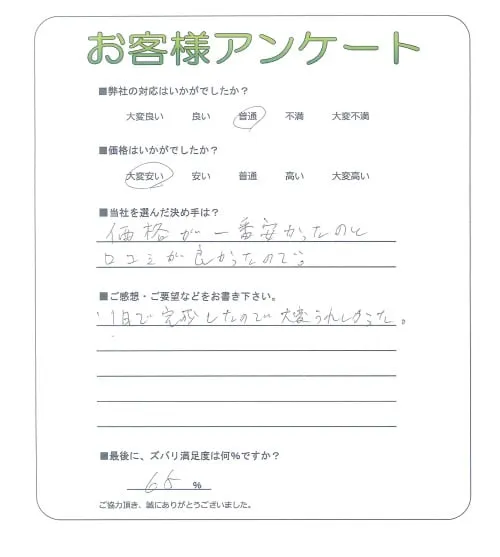 お客様アンケート
■弊社の対応はいかがでしたか？
大変良い 良い 普通 不満 大変不満
■価格はいかがでしたか？
大変安い 安い 普通 高い 大変高い
■当社を選んだ決め手は？
価格が一番安かったのと
口コミが良かったので。
■ご感想・ご要望などをお書き下さい。
1日で完成したので大変うれしかった。
■最後に、ズバリ満足度は何%ですか？
65 %
ご協力頂き、誠にありがとうございました。